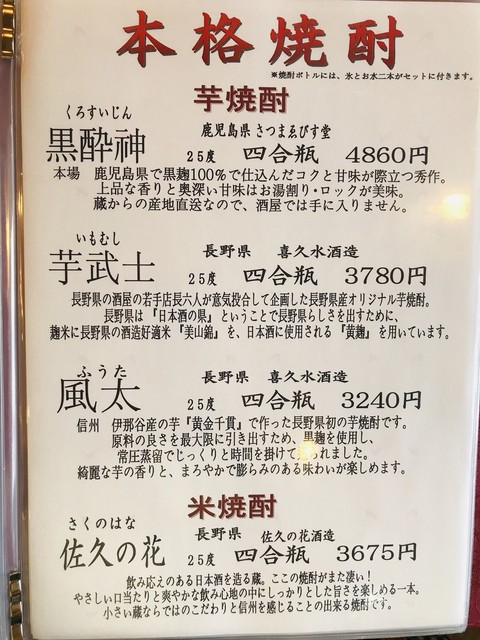 本格焼酎
※焼酎ボトルには、氷とお水二本がセットに付きます。
芋焼酎
くろすいじん
黒酔神 25度 鹿児島県 さつまゑびす堂 四合瓶 4860円
本場 鹿児島県で黒麹100%で仕込んだコクと甘味が際立つ秀作。
上品な香りと奥深い甘味はお湯割り・ロックが美味。
蔵からの産地直送なので、酒屋では手に入りません。
いもむし
芋武士 25度 長野県 喜久水酒造 四合瓶 3780円
長野県の酒屋の若手店長六人が意気投合して企画した長野県産オリジナル芋焼酎。
長野県は『日本酒の県』ということで長野県らしさを出すために、
麹米に長野県の酒造好適米『美山錦』を、日本酒に使用される『黄麹』を用いています。
ふうた
風太 25度 長野県 喜久水酒造 四合瓶 3240円
信州 伊那谷産の芋『黄金千貫』で作った長野県初の芋焼酎です。
原料の良さを最大限に引き出すため、黒麹を使用し、
常圧蒸留でじっくりと時間を掛けて られました。
綺麗な芋の香りと、まろやかで膨らみのある味わいが楽しめます。
米焼酎
さくのはな
佐久の花 25度 長野県 佐久の花酒造 四合瓶 3675円
飲み応えのある日本酒を造る蔵。ここの焼酎がまた凄い!
やさしい口当たりと爽やかな飲み心地の中にしっかりとした旨さを楽しめる一本。
小さい蔵ならではのこだわりと信州を感じることの出来る焼酎です。